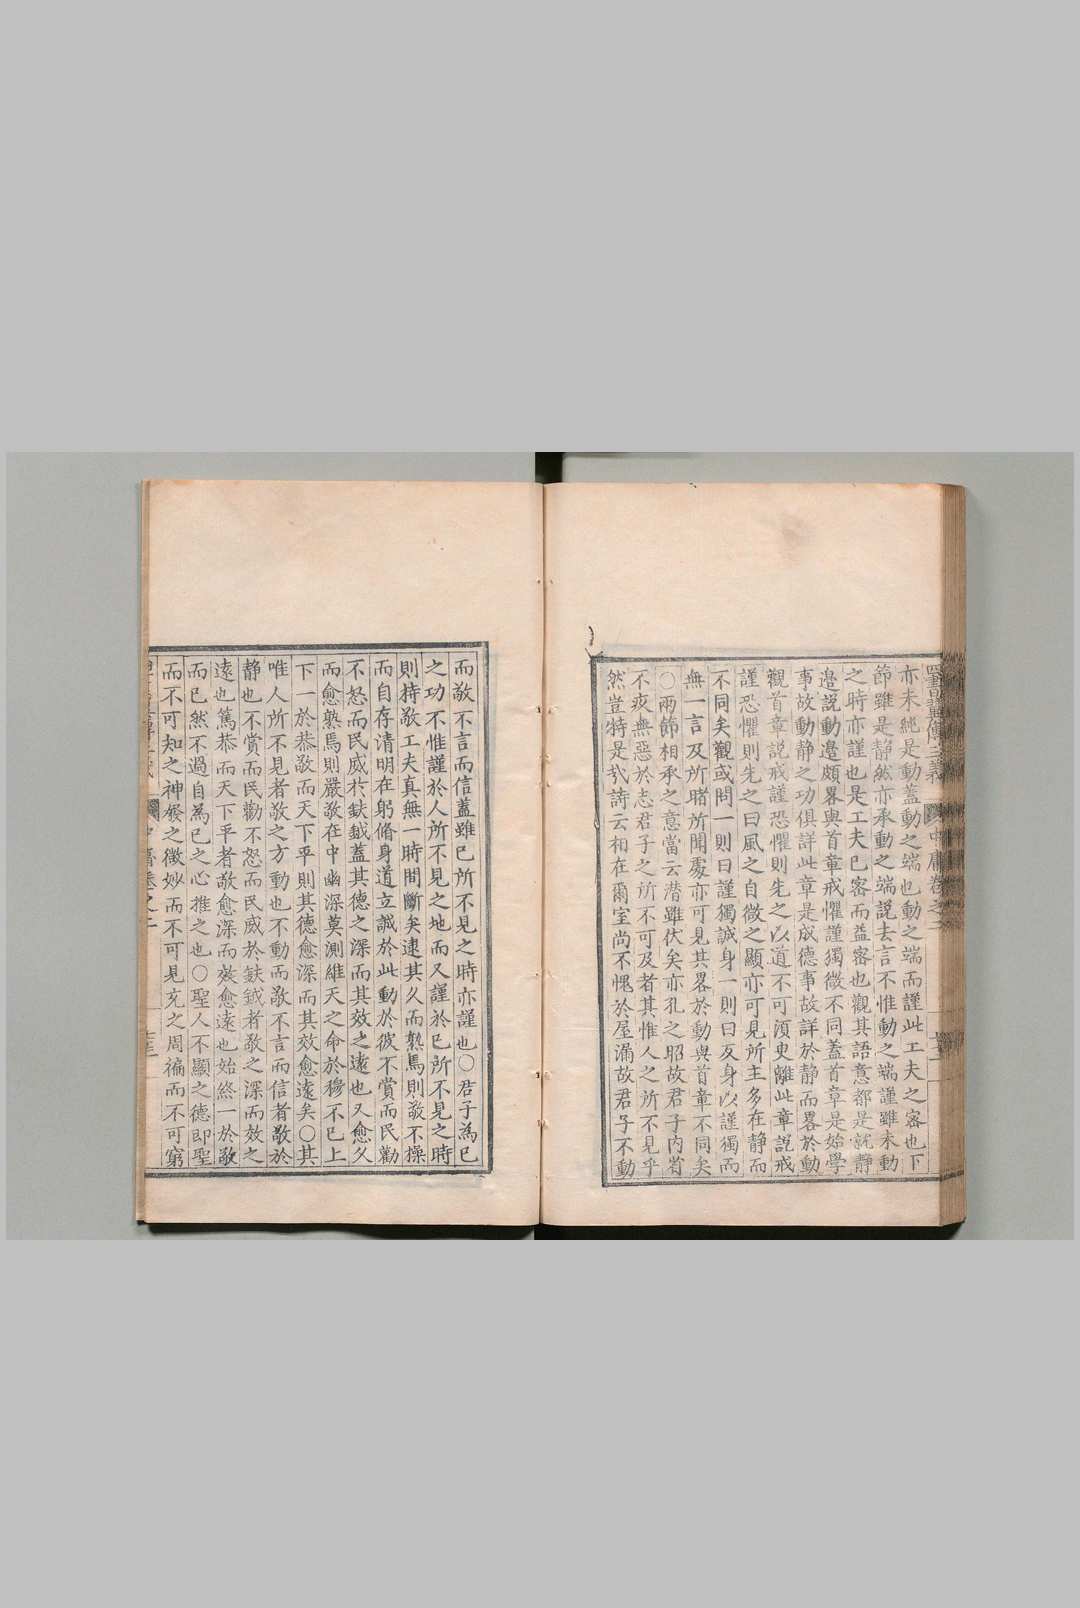 亦未純是動蓋動之端也動之端而謹此工夫之密也下
節雖是静然亦承動之端説去言不惟動之端謹雖未動
之時亦謹也是工夫已密而益密也觀其語意都是就静
邉説動邉頗畧與首章戒懼謹獨微不同蓋首章是始學
事故動静之功俱詳此章是成德事故詳於静而畧於動
觀首章説戒謹恐懼則先之以道不可湏臾離此章説戒
謹恐懼則先之曰風之自微之顯亦可見所主多在静而
不同矣觀或問一則曰謹獨誠身一則曰反身以謹獨而
無一言及所睹所聞處亦可見其畧於動與首章不同矣
○兩節相承之意當云潜雖伏矣亦孔之昭故君子内省
不疚無惡於志君子之所不可及者其惟人之所不見乎
然豈特是㢤詩云相在爾室尚不愧於屋漏故君子不動
而敬不言而信蓋雖已所不見之時亦謹也○君子為已
之功不惟謹於人所不見之地而又謹於已所不見之時
則持敬工夫真無一時間斷矣逮其久而熟焉則敬不操
而自存清明在躬脩身道立誠於此動於彼不賞而民勸
不怒而民威於鈇鉞蓋其德之深而其效之遠也又愈久
而愈熟焉則嚴敬在中幽深莫測維天之命於穆不已上
下一於恭敬而天下平則其德愈深而其效愈遠矣○其
唯人所不見者敬之方動也不動而敬不言而信者敬於
静也不賞而民勸不怒而民威於鈇鉞者敬之深而效之
遠也篤恭而天下平者敬愈深而效愈遠也始終一於敬
而已然不過自為已之心推之也○聖人不顯之德即聖
而不可知之神發之微妙而不可見充之周徧而不可窮